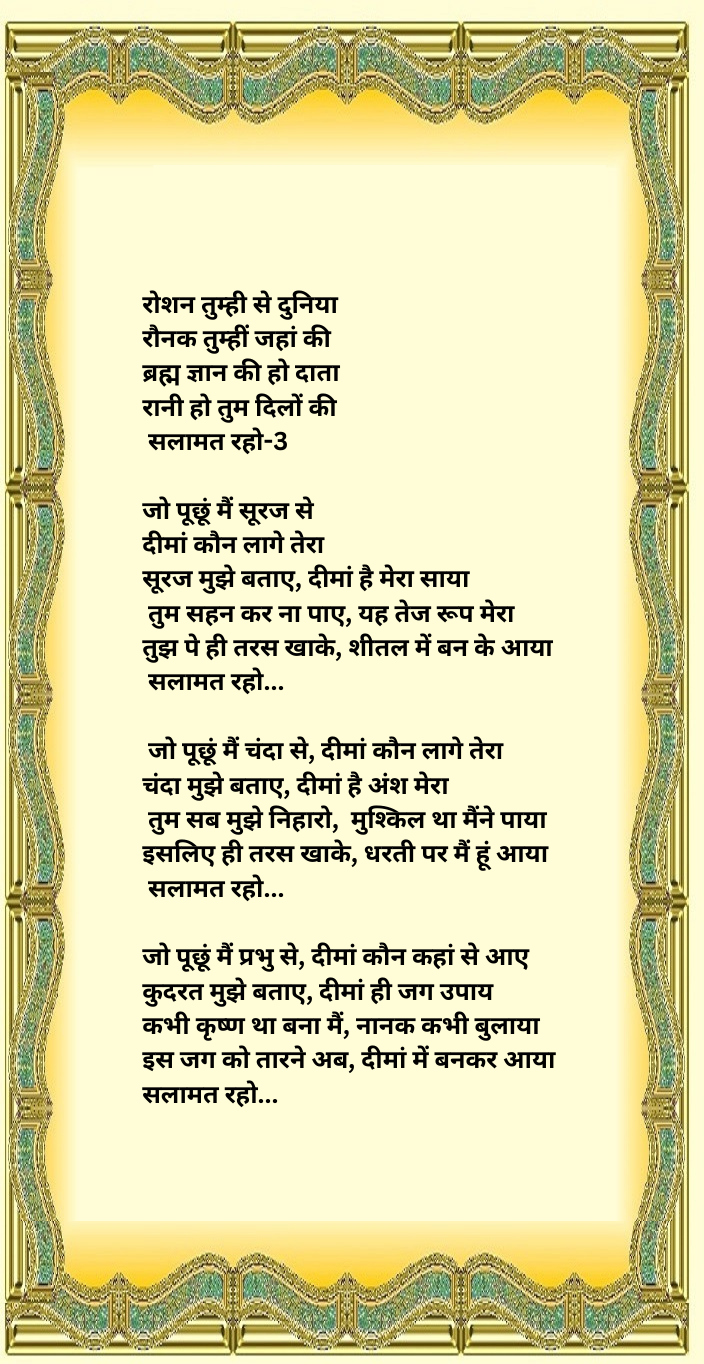 रोशन तुम्ही से दुनिया
रौनक तुम्हीं जहां की
ब्रह्म ज्ञान की हो दाता
रानी हो तुम दिलों की
सलामत रहो-3
जो पूछूं मैं सूरज से
दीमां कौन लागे तेरा
सूरज मुझे बताए, दीमां है मेरा साया
तुम सहन कर ना पाए, यह तेज रूप मेरा
तुझ पे ही तरस खाके, शीतल में बन के आया
सलामत रहो...
जो पूछूं मैं चंदा से, दीमां कौन लागे तेरा
चंदा मुझे बताए, दीमां है अंश मेरा
तुम सब मुझे निहारो, मुश्किल था मैंने पाया
इसलिए ही तरस खाके, धरती पर मैं हूं आया
सलामत रहो...
जो पूछूं मैं प्रभु से, दीमां कौन कहां से आए
कुदरत मुझे बताए, दीमां ही जग उपाय
कभी कृष्ण था बना मैं, नानक कभी बुलाया
इस जग को तारने अब, दीमां में बनकर आया
सलामत रहो...